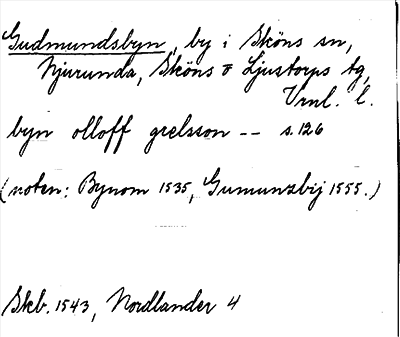 Gudmundsbyn, by i Sköns sn,
Njurunda, Sköns o Ljustorps tg,
Vrnl. l.
byn olloff grelsson -- s.126
(noten: Bynom 1535, Gumunzbij 1555.)
Skb. 1543, Nordlander 4